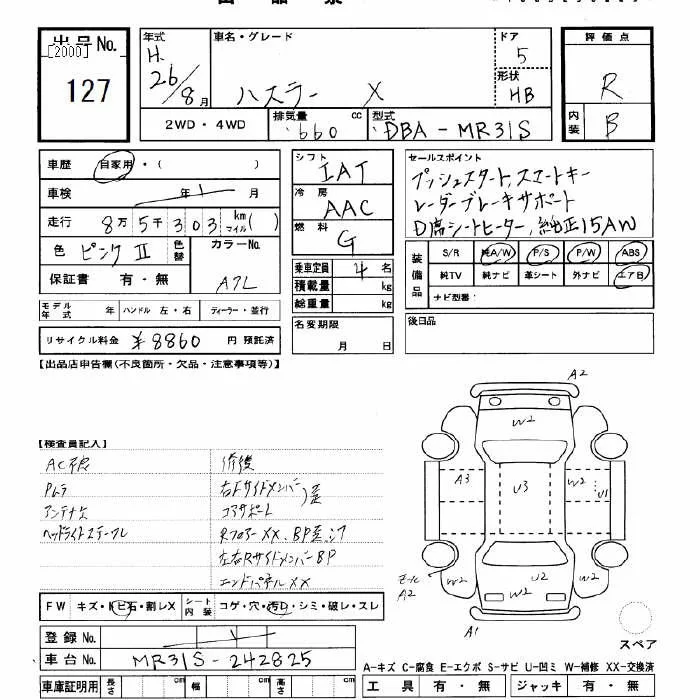 出品票
出品No.
[2000]
127
年式 車名・グレード ドア 評価点
H.26/8月 ハスラー X 5
形状 HB
R
2WD・4WD 排気量 660 cc 型式 DBA-MR31S 内装 B
車歴 自家用・( )
車検 年 月
走行 8万5千303 km マイル( )
色 ピンクII 色替 カラーNo.
保証書 有・無 A7L
モデル年式 年 ハンドル 左・右 ディーラー・並行
リサイクル料金 ¥8860 円 預託済
シフト IAT
冷房 AAC
燃料 G
乗車定員 4 名
積載量 kg
総重量 kg
名変期限 月 日
セールスポイント
プッシュスタート,スマートキー
レーダーブレーキサポート
D席シートヒーター,純正15AW
装備品 S/R 純A/W P/S P/W ABS
純TV 純ナビ 革シート 外ナビ エア日
ナビ型番:
後日品
【出品店申告欄(不良箇所・欠品・注意事項等)】
【検査員記入】
修復
PMラ 右Fサイドメンバー
コアサポート
左右RサイドメンバーBP
エンドパネルXX
FW キズ・トビ石・割レX シート内装 コゲ・穴・汚レ・シミ・破レ・スレ
登録No.
車台No. MR31S-242825
車庫証明用 長さ cm 幅 cm 高さ cm
A2
W2
A3 U3 W2 U1
W2 W2 U2 W2
A2
A1
スペア
A-キズ C-腐食 E-エクボ S-サビ U-凹ミ W-補修 XX-交換済
工具 有・無 ジャッキ 有・無